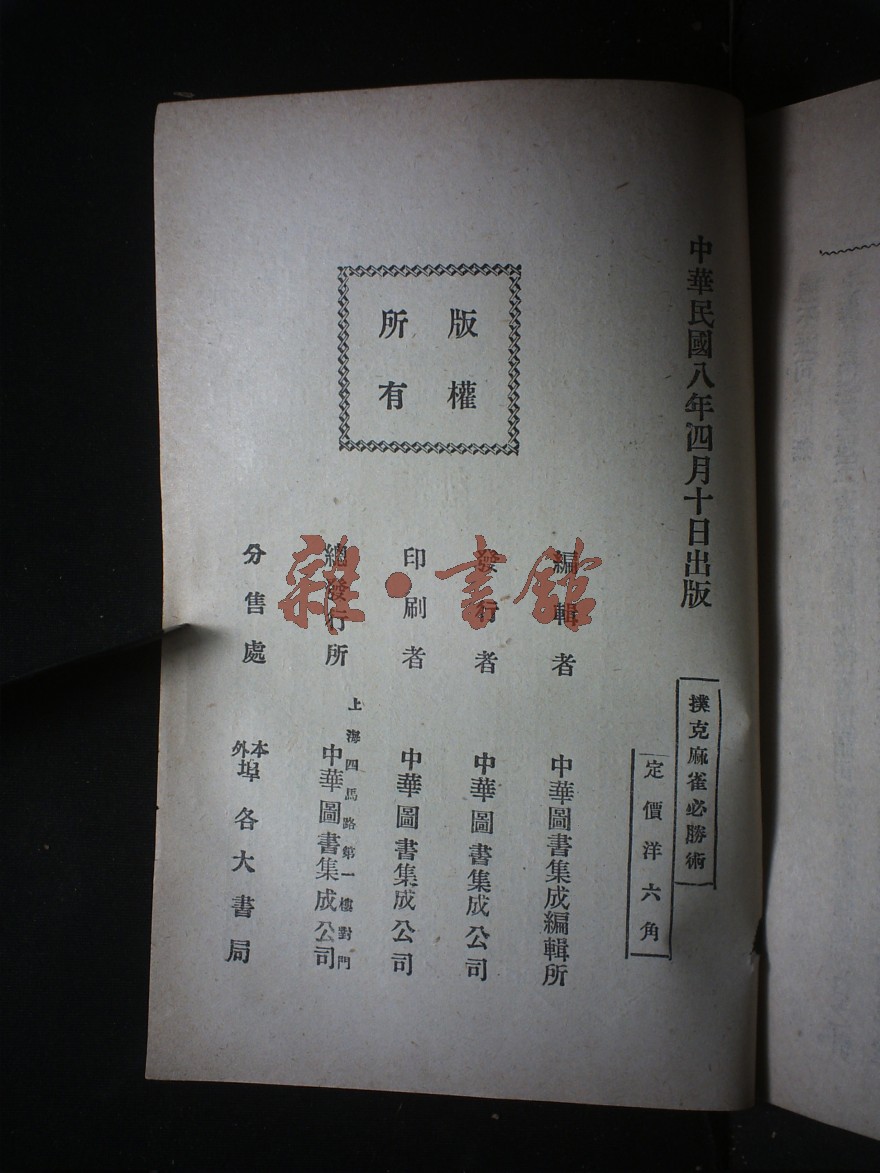 中華民國八年四月十日出版
撲克麻雀必勝術
定價洋六角
版權
所有
編輯者 中華圖書集成編輯所
發行者 中華圖書集成公司
印刷者 中華圖書集成公司
總發行所 上海四馬路第一樓對門 中華圖書集成公司
分售處 本外埠各大書局
雜·書館